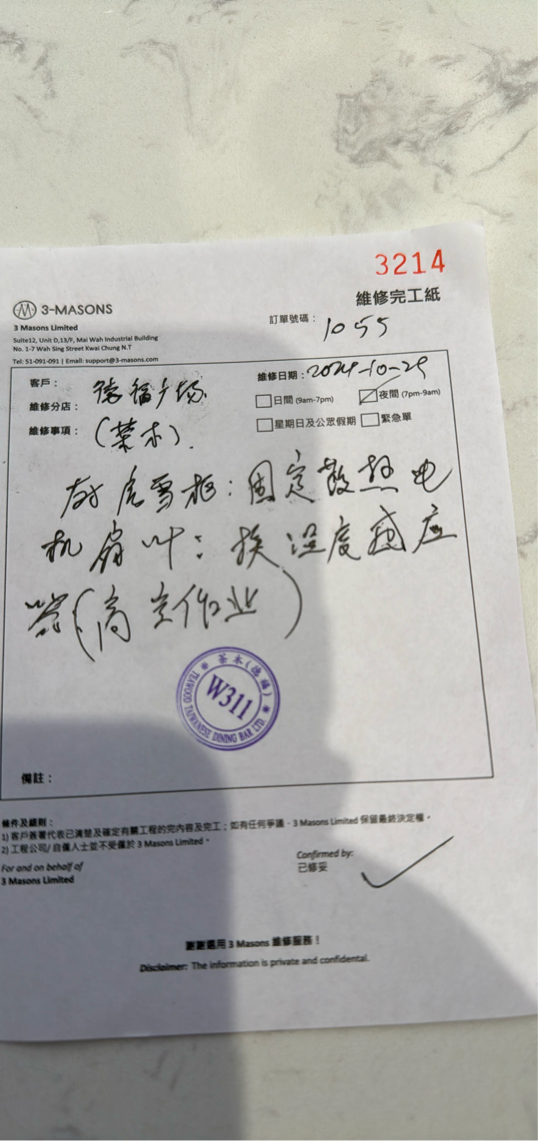 3214
維修完工紙
3-MASONS
訂單號碼： 1055
3 Masons Limited
Suite12, Unit D,13/F, Mai Wah Industrial Building
No. 1-7 Wah Sing Street Kwai Chung N.T
Tel: 51-091-091 | Email: support@3-masons.com
客戶： 德福广场
維修日期：2024-10-29
維修分店：
日間 (9am-7pm) 夜間 (7pm-9am)
維修事項： (茶木).
星期日及公眾假期 緊急單
雪柜：固定散热电
机扇叶：换温度感应
(高空作业)
茶木(德福)
W311
TEAWOOD TAIWANESE DINING BAR LTD
備註：
條件及細則：
1) 客戶簽署代表已清楚及確定有關工程的完內容及完工；如有任何爭議，3 Masons Limited 保留最終決定權。
2) 工程公司/ 自僱人士並不受僱於 3 Masons Limited。
For and on behalf of
3 Masons Limited
Confirmed by:
已修妥
謝謝選用 3 Masons 維修服務！
Disclaimer: The information is private and confidental.